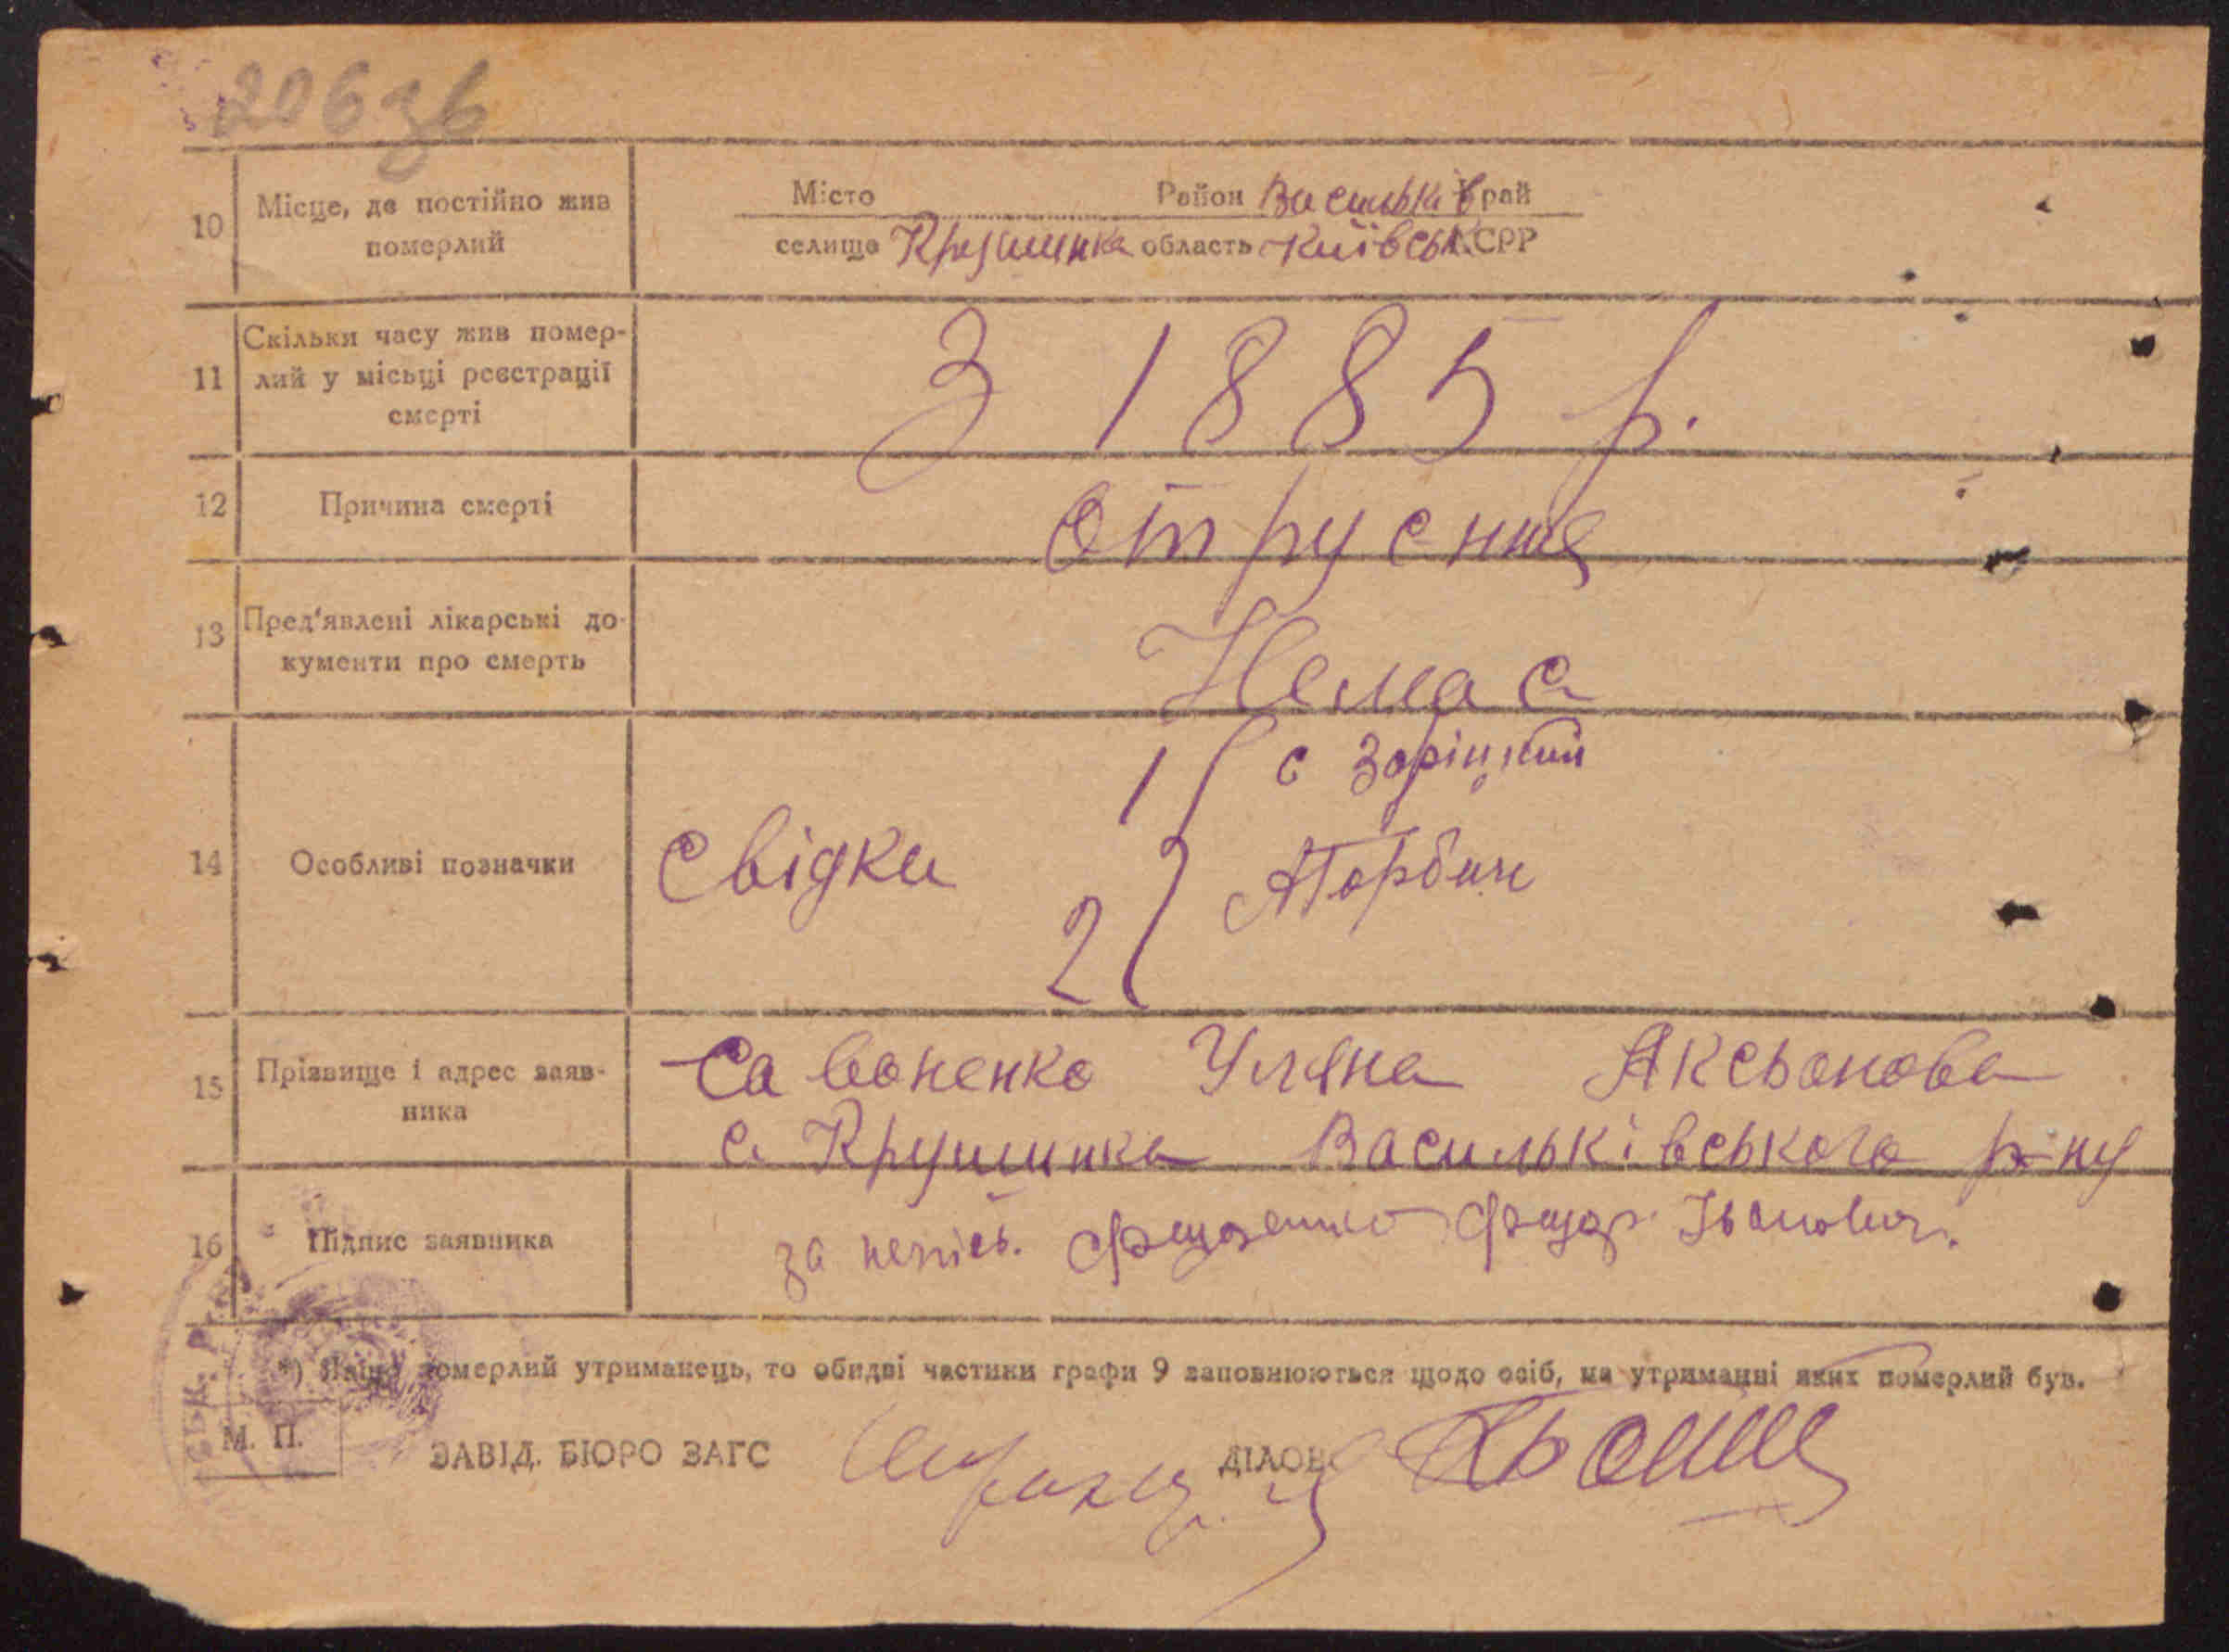 206зв
10 Місце, де постійно жив померлий
Місто Район Васильків Край
селище Крушинка область Київськ СРР
11 Скільки часу жив помер-
лий у місьці реєстрації
смерті
З 1885 р.
12 Причина смерті
Отруєння
13 Пред'явлені лікарські до-
кументи про смерть
Немає
14 Особливі позначки
Свідки
1 с Заріцкий
2 А Горбач
15 Прізвище і адрес заяв-
ника
Савоненко Уляна Аксьонова
с. Крушинка Васильківського р-ну
16 Підпис заявника
за непісь. Федор Іванович.
*) Якщо померлий утриманець, то обидві частини графи 9 заповнюються щодо осіб, на утриманні яких померлий був.
М. П.
ЗАВІД. БЮРО ЗАГС ДІЛОВ